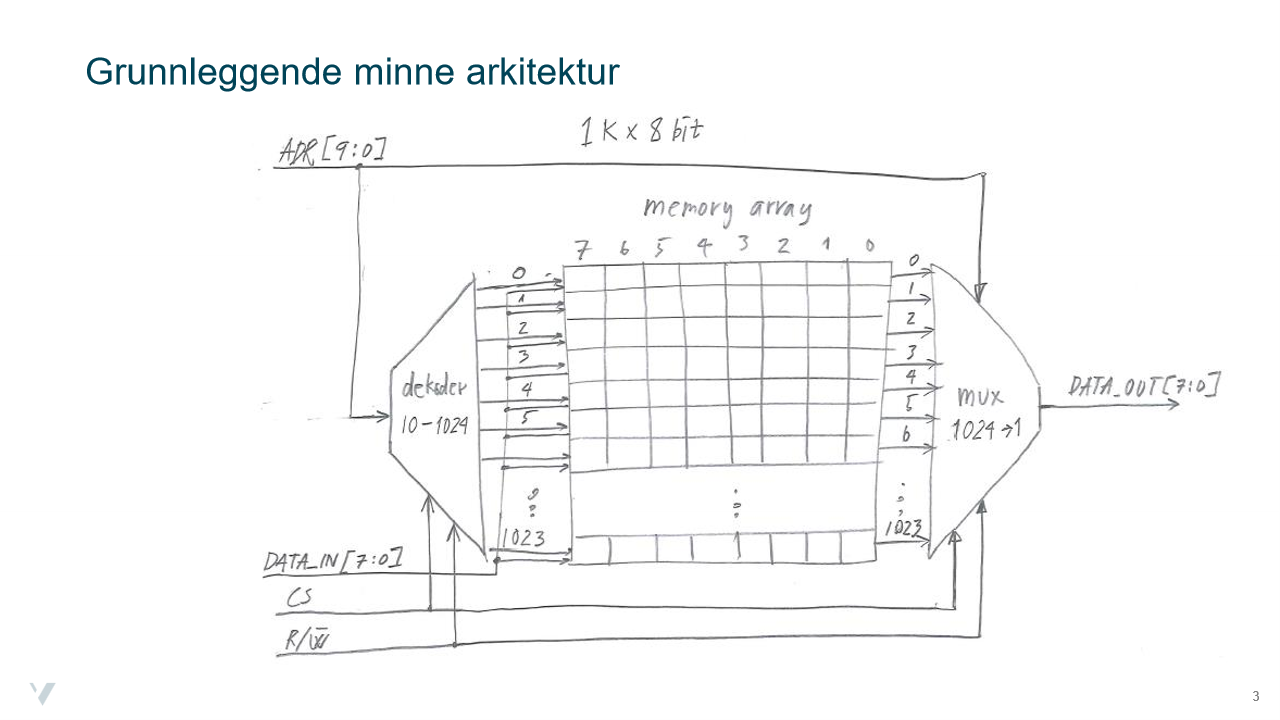 Grunnleggende minne arkitektur
1K x 8 bit
ADR[9:0]
memory array
7 6 5 4 3 2 1 0
0
1
2
3
4
5
1023
0
1
2
3
4
5
6
1023
dekoder
10-1024
mux
1024→1
DATA_OUT[7:0]
DATA_IN[7:0]
CS
R/W̅
3